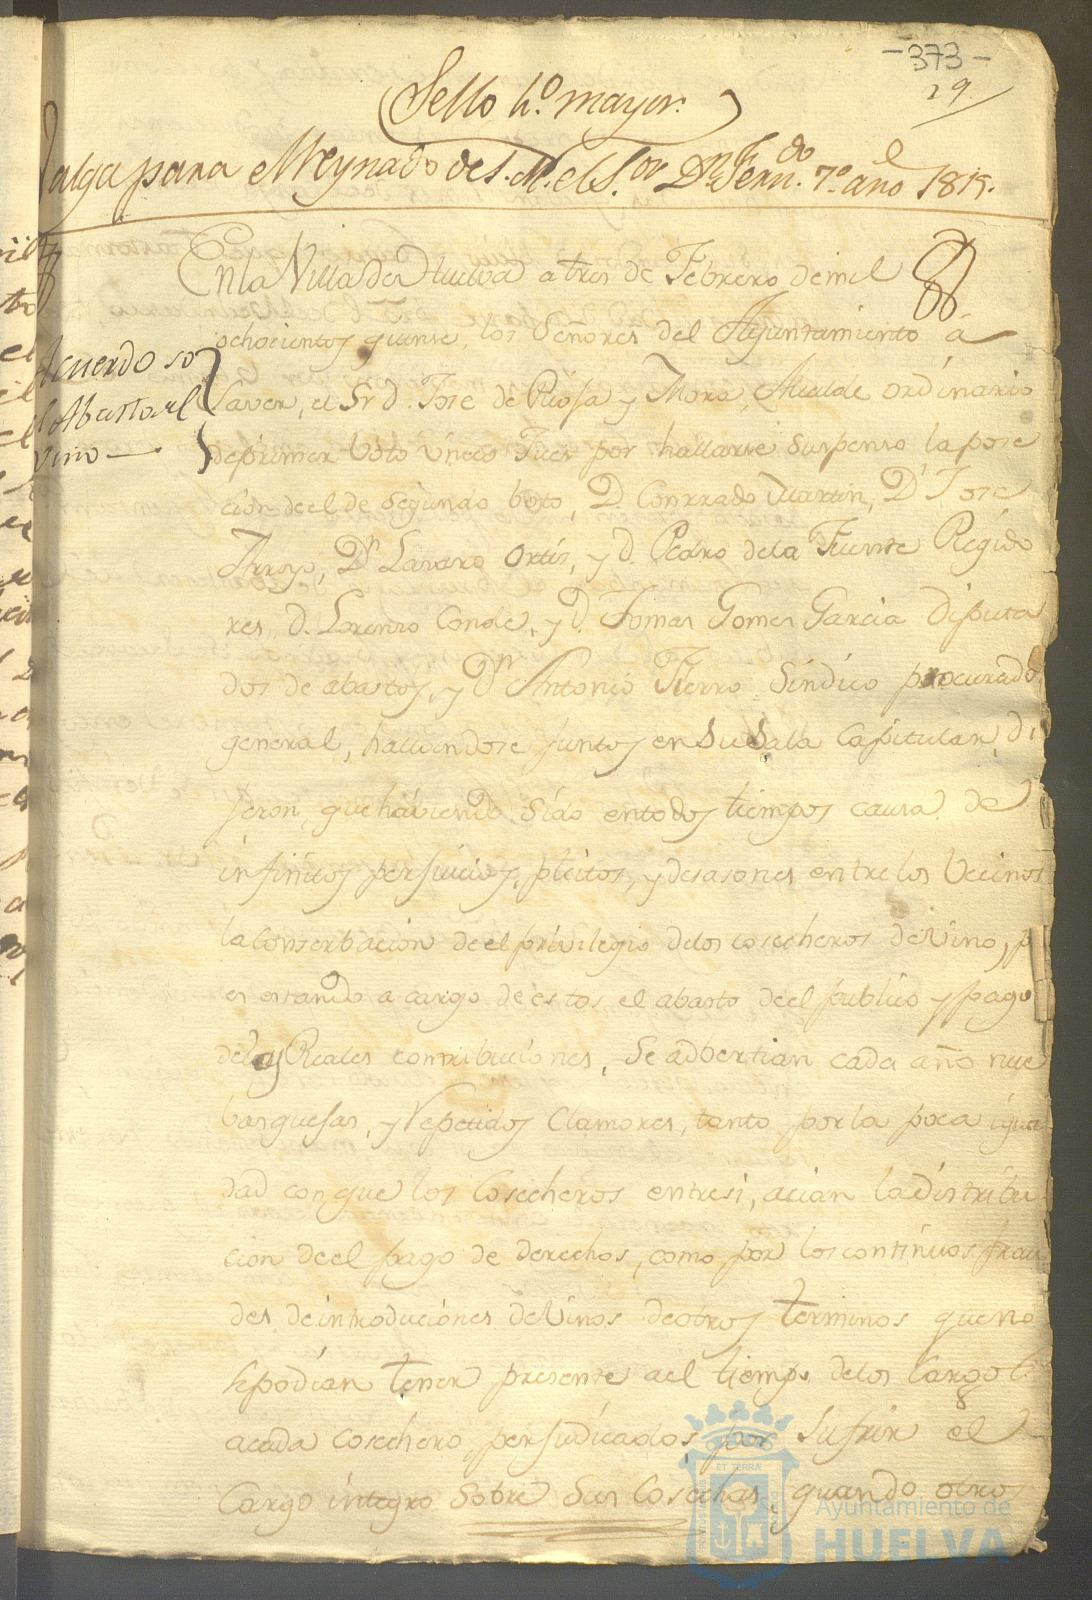 -373-
29
Sello 4º. mayor.
Valga para el Reynado de S. M. el S.or Dn. Fern.do 7º. año de 1815.
En la Villa de Huelva a tres de Febrero de mil
ochocientos quinse, los Señores del Ayuntamiento á
Acuerdo so
el Abasto del
vino
Saver, el Sr. D. Jose de Riosa y Mora, Alcalde ordinario
de primer Voto único Juez por hallarse suspenso la pose
cion de el de segundo boto, D. Conrrado Martin, Dn Jose
Arroyo, Dn. Lazaro Ortis, y D. Pedro de la Fuente Regido
res, D. Lorenso Conde, y D. Tomas Gomes Garcia Diputa
dos de abastos, y Dn Antonio Fierro Sindico procurador
general, hallandose juntos en Su Sala Capitular, di
jeron, que haviendo sido entodos tiempos causa de
infinitos perjuicios, pleitos, y desasones entre los Vecinos
la conserbacion de el privilegio delos cosecheros de Vino, p
es estando a cargo de estos el abasto de el publico y pago
de los Reales contribuciones, se adbertian cada año nue
bas quejas, y Repetidos Clamores, tanto por la poca igual
dad con que los Cosecheros entresi, acian la distribu
cion de el pago de derechos, como por los continuos frau
des de introduciones de Vinos de otros terminos que no
se podian tener presente a el tiempo delos Cargos
acada cosechero, perjudicados por sufrir el
Cargo integro sobre sus Cosechas, quando otros
Ayuntamiento de
HUELVA